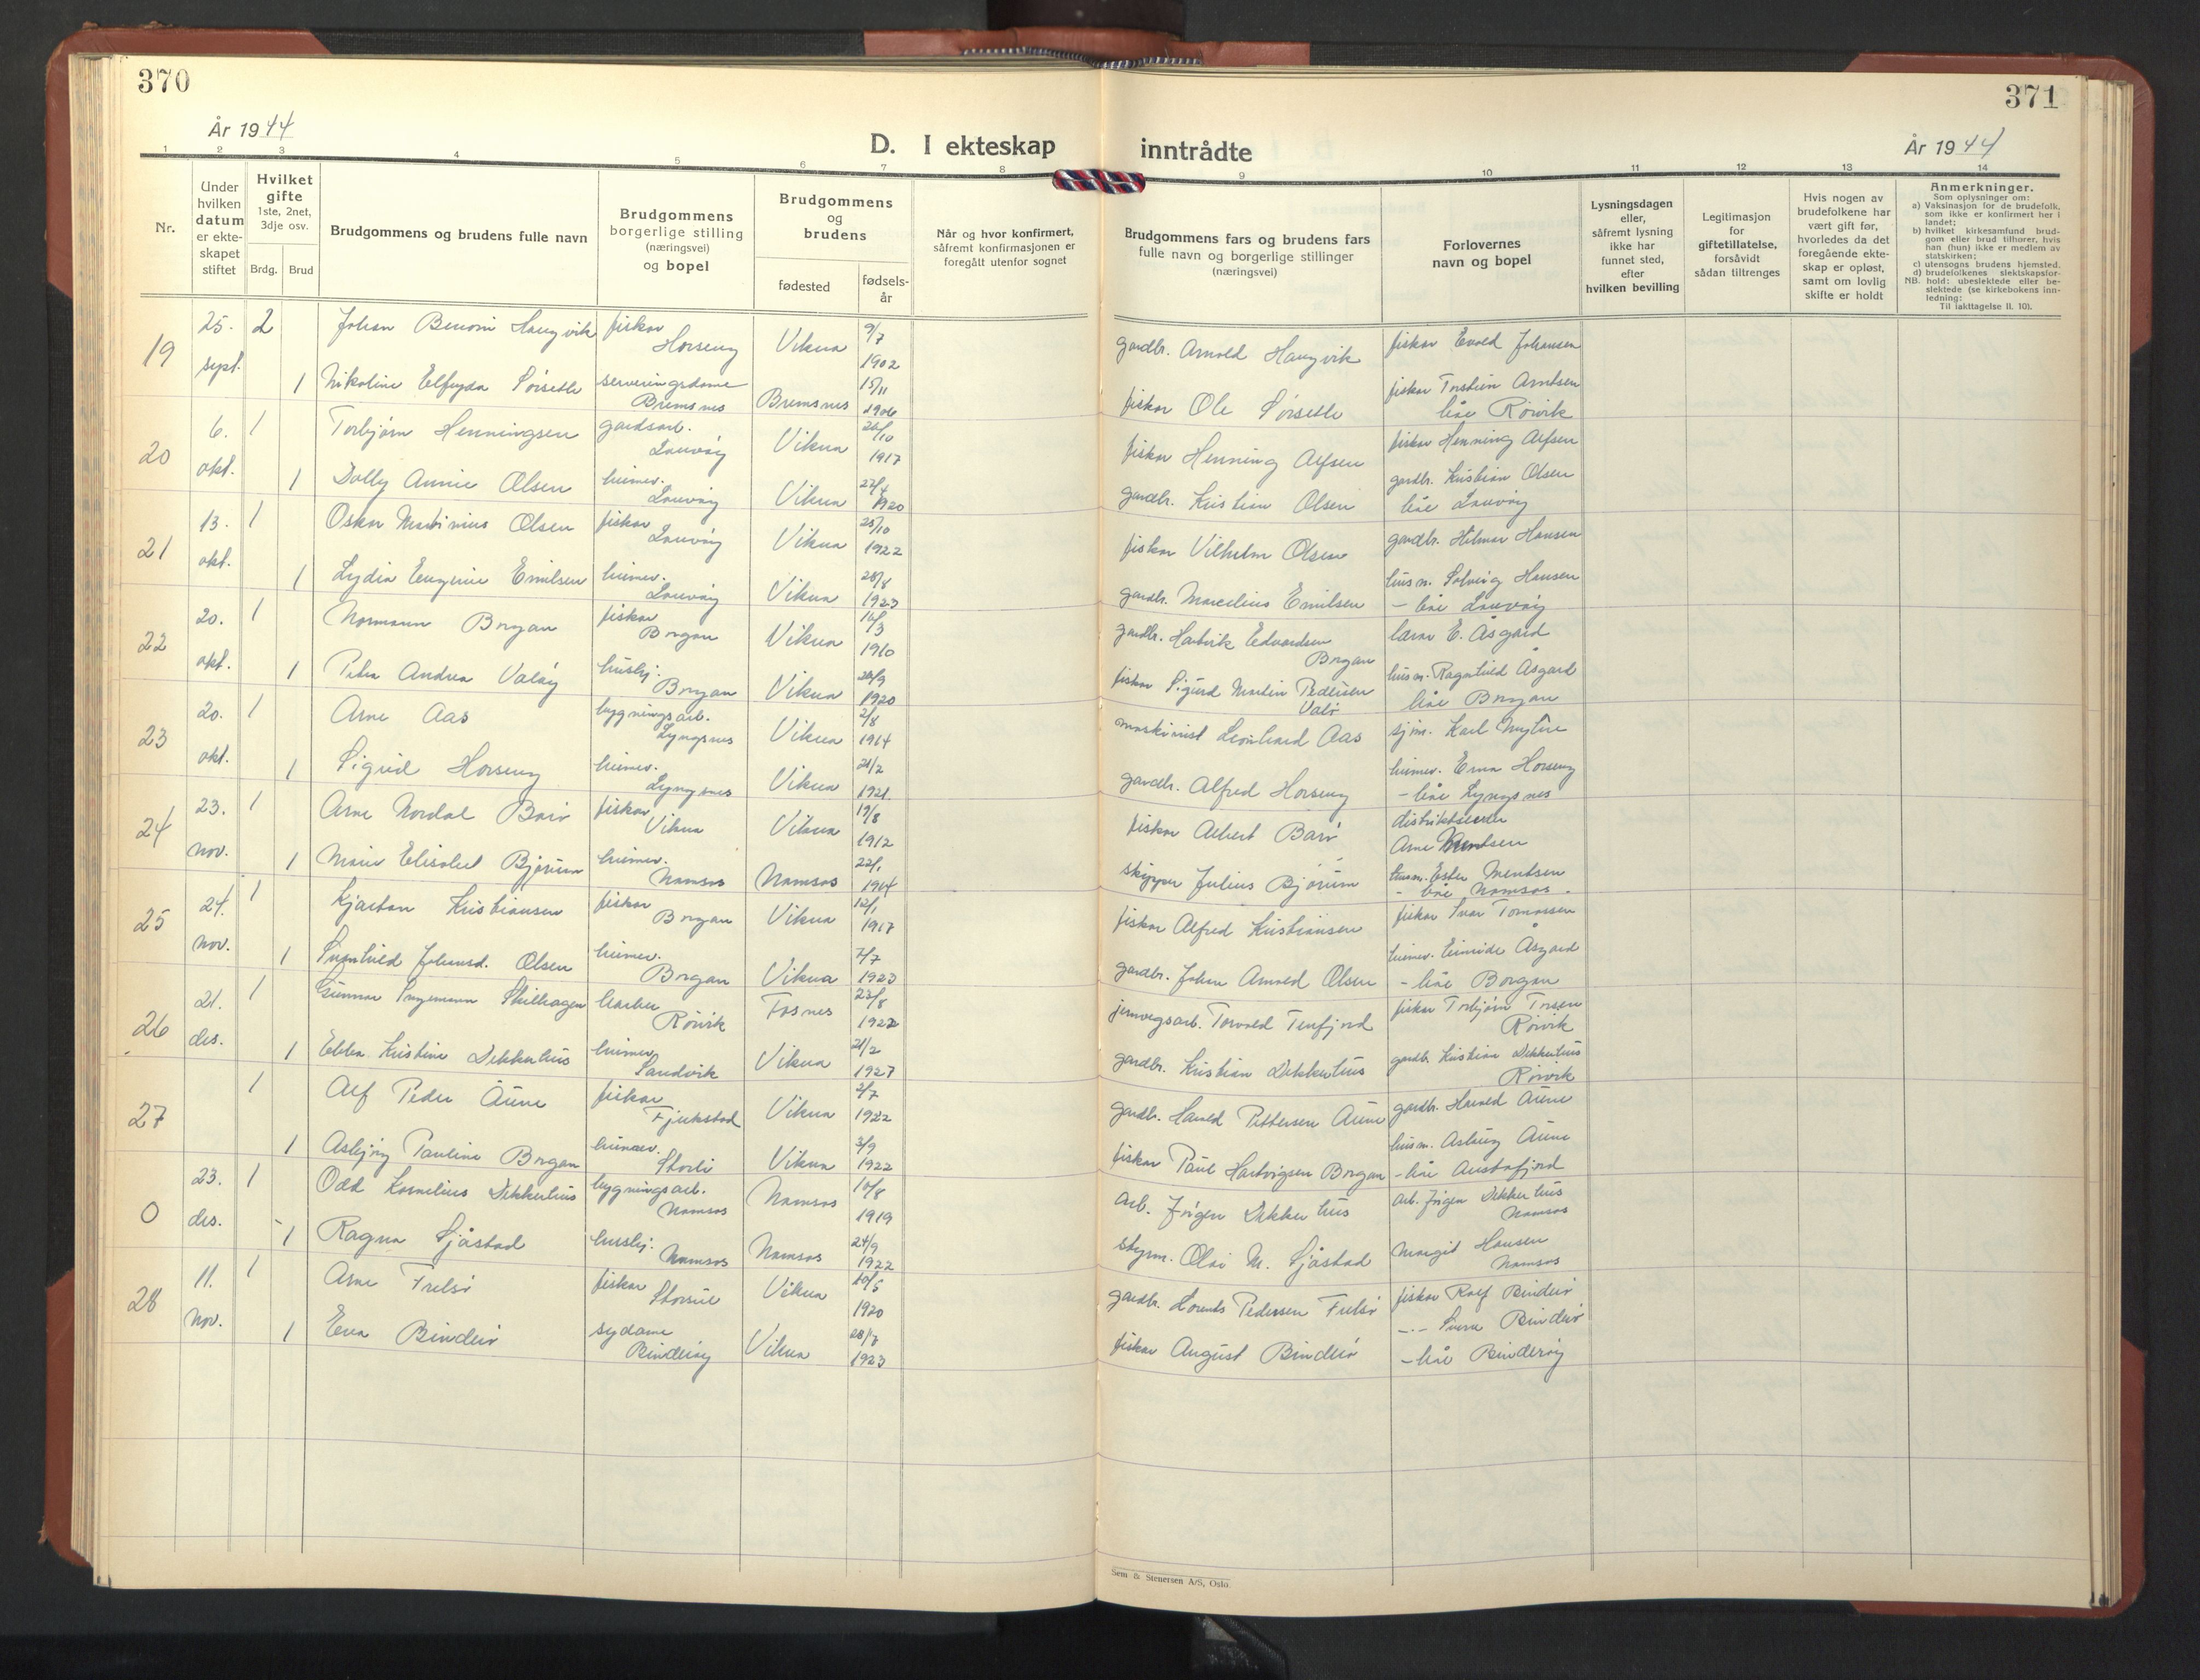 370
371
År 1944
D. I ekteskap inntrådte
År 1944
1 2 3 4 5 6 7 8 9 10 11 12 13 14
Nr.
Under hvilken datum er ekte-skapet stiftet
Hvilket gifte
1ste, 2net, 3dje osv.
Brdg. Brud
Brudgommens og brudens fulle navn
Brudgommens borgerlige stilling (næringsvei) og bopel
Brudgommens og brudens
fødested
fødsels-år
Når og hvor konfirmert, såfremt konfirmasjonen er foregått utenfor sognet
Brudgommens fars og brudens fars fulle navn og borgerlige stillinger (næringsvei)
Forlovernes navn og bopel
Lysningsdagen eller, såfremt lysning ikke har funnet sted, efter hvilken bevilling
Legitimasjon for giftetillatelse, forsåvidt sådan tiltrenges
Hvis nogen av brudefolkene har vært gift før, hvorledes da det foregående ekte-skap er opløst, samt om lovlig skifte er holdt
Anmerkninger.
Som oplysninger om:
a) Vaksinasjon for de brudefolk, som ikke er konfirmert her i landet;
b) hvilket kirkesamfund brud-gom eller brud tilhører, hvis han (hun) ikke er medlem av statskirken;
c) utensogns brudens hjemsted.
d) brudefolkenes slektskapsfor-hold: ubeslektede eller be-slektede (se kirkebokens inn-ledning:
NB.
Til iakttagelse II. 10).
19 25. sept. 2 Johan Benoni Haugvik fiskar Horseng Vikna 9/7 1902 gardbr. Arnold Haugvik fiskar Evald Johansen
1 Nikoline Elfryda Sørsetle serveringsdame Bremsnes Bremsnes 15/11 1906 fiskar Ole Sørsetle fiskar Torstein Arntsen båe Rørvik
20 6. okt. 1 Torbjørn Henningsen gardsarb. Lauvøy Vikna 26/10 1917 fiskar Henning Alfsen fiskar Henning Alfsen
1 Dolly Annie Olsen heimev. Lauvøy Vikna 1920 gardbr. Kristian Olsen gardbr. Kristian Olsen båe Lauvøy
21 13. okt. 1 Oskar Martinius Olsen fiskar Lauvøy Vikna 25/10 1922 fiskar Vilhelm Olsen gardbr. Hilmar Hansen
1 Lydia Eugenie Emilsen heimev. Lauvøy Vikna 28/8 1923 gardbr. Marcelius Emilsen husm. Solveig Hansen - båe Lauvøy
22 20. okt. 1 Normann Borgan fiskar Borgan Vikna 16/3 1910 gardbr. Hartvik Edvardsen Borgan lærar E. Åsgard
1 Petra Andrea Valøy hushj. Borgan Vikna 26/9 1920 fiskar Sigurd Martin Pedersen Valø husm. Ragnhild Åsgard båe Borgan
23 20. okt. 1 Arne Aas bygningsarb. Lyngsnes Vikna 2/8 1914 maskinist Leonhard Aas sjm. Karl Myhre
1 Sigrid Horseng heimev. Lyngsnes Vikna 21/2 1921 gardbr. Alfred Horseng heimev. Erna Horseng - båe Lyngsnes
24 23. nov. 1 Arne Nordal Barø fiskar Vikna Vikna 19/8 1912 fiskar Albert Barø Arne Mentsen
1 Marie Elisabet Bjørum heimev. Namsos Namsos 22/1 1914 skipper Julius Bjørum husm. Ester Mentsen - båe Namsos.
25 24. nov. 1 Kjartan Kristiansen fiskar Borgan Vikna 12/1 1917 fiskar Alfred Kristiansen fiskar Ivar Tomassen
1 Svanhild Johansd. Olsen heimev. Borgan Vikna 7/7 1923 gardbr. Johan Arnold Olsen heimev. Åsgard - båe Borgan
26 21. des. 1 Gunnar Ingemann Skilhagen barber Rørvik Fosnes 23/8 1922 jernvegsarb. Torvald Tenfjord fiskar Torbjørn Torsen Rørvik
1 Ebba Kristine Dekkerhus heimev. Sandvik Vikna 21/2 1927 gardbr. Kristian Dekkerhus gardbr. Kristian Dekkerhus Rørvik
27 1 Alf Peder Aune fiskar Fjukstad Vikna 2/7 1922 gardbr. Harald Pettersen Aune gardbr. Harald Aune
1 Asbjørg Pauline Borgan heimev. Storli Vikna 3/9 1922 fiskar Paul Hartvigsen Borgan husm. Aslaug Aune - båe Austafjord
0 23. des. 1 Odd Kornelius Dekkerhus bygningsarb. Namsos Namsos 10/8 1919 arb. Jørgen Dekkerhus arb. Jørgen Dekkerhus Namsos
1 Ragna Sjåstad hushj. Namsos Namsos 24/9 1922 styrm. Olai M. Sjåstad Margit Hansen Namsos
28 11. nov. 1 Arne Frelsø fiskar Vikna 20/5 1920 gardbr. Lorents Pedersen Frelsø fiskar Rolf Binderø
1 Eva Binderø sydame Binderøy Vikna 1923 fiskar August Binderø -"- Sverre Binderø - båe Binderøy
Sem & Stenersen A/S, Oslo.